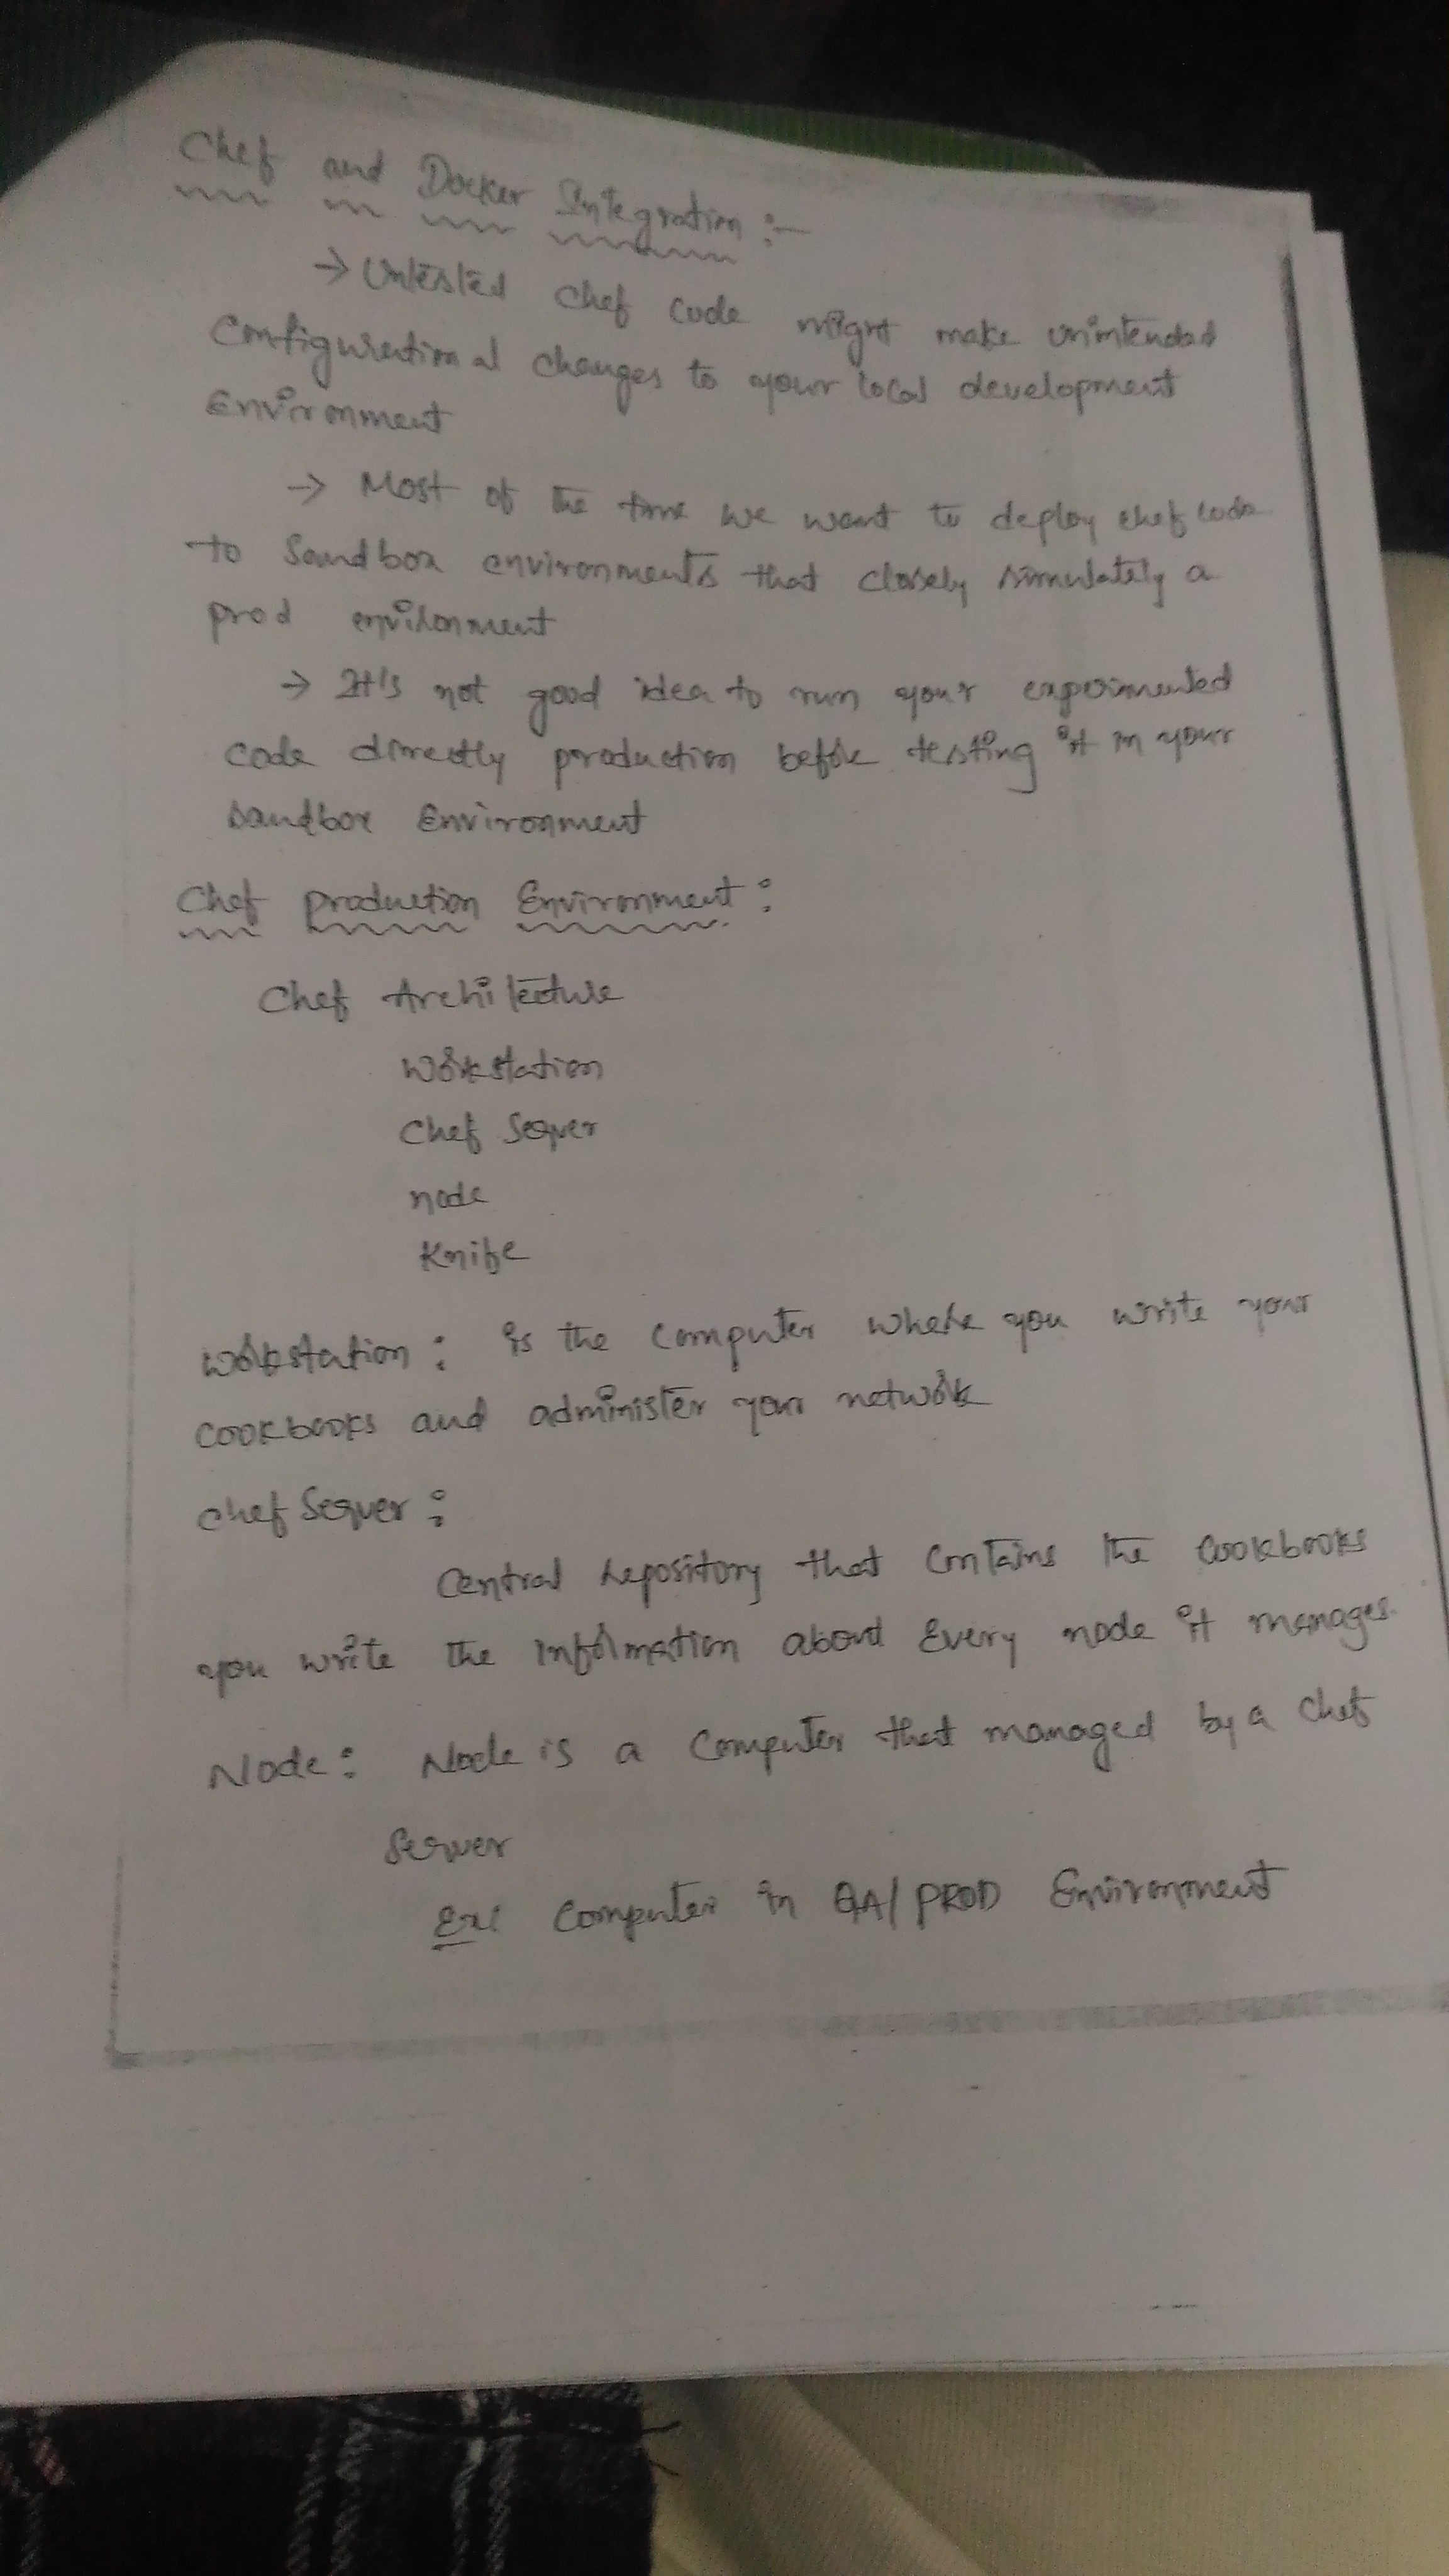 Chef and Docker Integration :-
→ Untested chef code might make unintended
Configurational changes to your local development
Environment
→ Most of the time we want to deploy chef code
to Sandbox environments that closely simulately a
prod environment
→ It's not good idea to run your experimented
code directly production before testing it in your
sandbox Environment
Chef production Environment :
Chef Architecture
Workstation
Chef Server
node
Knife
Workstation : is the computer where you write your
cookbooks and administer your network
chef Server :
Central repository that contains the cookbooks
you write the information about Every node it manages.
Node : Node is a computer that managed by a chef
Server
Ex: Computer in QA/PROD Environment